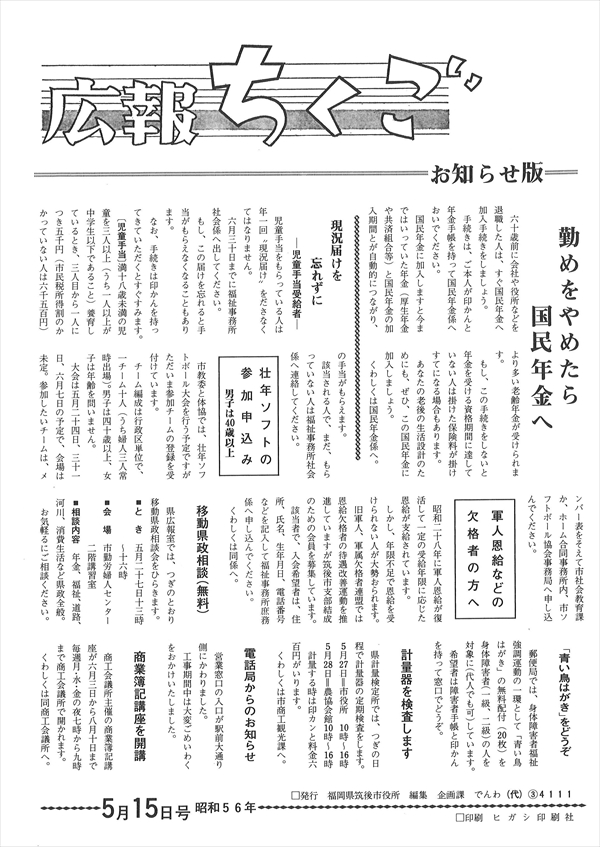 広報ちくご
お知らせ版
勤めをやめたら
国民年金へ
六十歳前に会社や役所などを
退職した人は、すぐ国民年金へ
加入手続きをしましょう。
手続きは、ご本人が印かんと
年金手帳を持って国民年金係へ
おいでください。
国民年金に加入しますと今ま
ではいっていた年金（厚生年金
や共済組合等）と国民年金の加
入期間とが自動的につながり、
より多い老齢年金が受けられま
す。
もし、この手続きをしないと
年金を受ける資格期間に達して
いない人は掛けた保険料が掛け
すてになる場合もあります。
あなたの老後の生活設計のた
めにも、ぜひ、この国民年金に
加入しましょう。
くわしくは国民年金係へ。
現況届けを
忘れずに
―児童手当受給者―
児童手当をもらっている人は
年一回〝現況届け〟をださなく
てはなりません。
六月三十日までに福祉事務所
社会係へ出してください。
もし、この届けを忘れると手
当がもらえなくなることもあり
ます。
なお、手続きは印かんを持っ
てきていただくとすぐすみます。
〔児童手当〕満十八歳未満の児
童を三人以上（うち一人以上が
中学生以下であること）養育し
ているとき、三人目から一人に
つき五千円（市民税所得割のか
かっていない人は六千五百円）
の手当がもらえます。
該当される人で、まだ、もら
っていない人は福祉事務所社会
係へ連絡してください。
壮年ソフトの
参加申込み
男子は40歳以上
市教委と体協では、壮年ソフ
トボール大会を行う予定ですが
ただいま参加チームの登録を受
付けています。
チーム編成は行政区単位で、
一チーム十人（うち婦人三人常
時出場）。男子は四十歳以上、女
子は年齢を問いません。
大会は五月二十四日、三十一
日、六月七日の予定で、会場は
未定。参加したいチームは、メ
ンバー表をそえて市社会教育課
か、ホーム合同事務所内、市ソ
フトボール協会事務局へ申し込
んでください。
軍人恩給などの
欠格者の方へ
昭和二十八年に軍人恩給が復
活して一定の受給年限に応じた
恩給が支給されています。
しかし、年限不足で恩給を受
けられない人が大勢おられます。
旧軍人、軍属欠格者連盟では
恩給欠格者の待遇改善運動を推
進していますが筑後市支部結成
のための会員を募集しています。
該当者で、入会希望者は、住
所、氏名、生年月日、電話番号
などを記入して福祉事務所庶務
係へ申し込んでください。
くわしくは同係へ。
移動県政相談（無料）
県広報室では、つぎのとおり
移動県政相談会をひらきます。
■とき　五月二十七日十三時
～十六時
■会場　市勤労婦人センター
二階講習室
■相談内容　年金、福祉、道路、
河川、消費生活など県政全般。
お気軽にご相談ください。
「青い鳥はがき」をどうぞ
郵便局では、身体障害者福祉
強調運動の一環として「青い鳥
はがき」の無料配付（20枚）を
身体障害者（一級、二級）の人を
対象に（代人でも可）しています。
希望者は障害者手帳と印かん
を持って窓口でどうぞ。
計量器を検査します
県計量検定所では、つぎの日
程で計量器の定期検査をします。
5月27日＝市役所　10時～16時
5月28日＝農協会館10時～16時
計量する時は印カンと料金六
百円がいります。
くわしくは市商工観光課へ。
電話局からのお知らせ
営業窓口の入口が駅前大通り
側にかわりました。
工事期間中は大変ごめいわく
をおかけいたしました。
商業簿記講座を開講
商工会議所主催の商業簿記講
座が六月三日から八月十日まで
毎週月・水・金の夜七時から九時
まで商工会議所で開かれます。
くわしくは同商工会議所へ。
□発行　福岡県筑後市役所　編集　企画課　でんわ（代）③4111
5月15日号 昭和56年
□印刷　ヒガシ印刷社